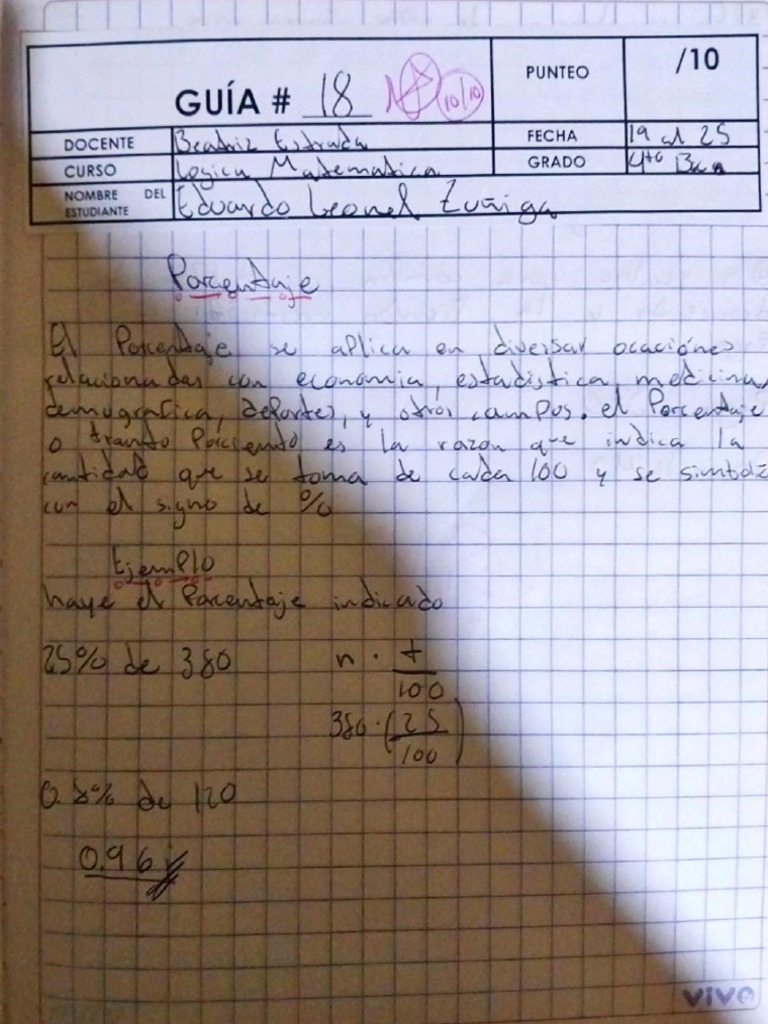 GUÍA # 18 10/10
PUNTEO /10
DOCENTE Beatriz Estrada
FECHA 19 al 25
CURSO Logica Matematica
GRADO 4to
NOMBRE DEL ESTUDIANTE Eduardo Leonel Zuñiga
Porcentaje
El Porcentaje se aplica en diversas ocaciónes
relacionadas con economia, estadistica, medicina,
demografica, deportes, y otros campos. el Porcentaje
o tranto Porciento es la razon que indica la
cantidad que se toma de cada 100 y se simboliz
con el signo de %
Ejemplo
haye el Porcentaje indicado
25% de 380 n · t/100
380 · (25/100)
0.8% de 120
0.96
vivo